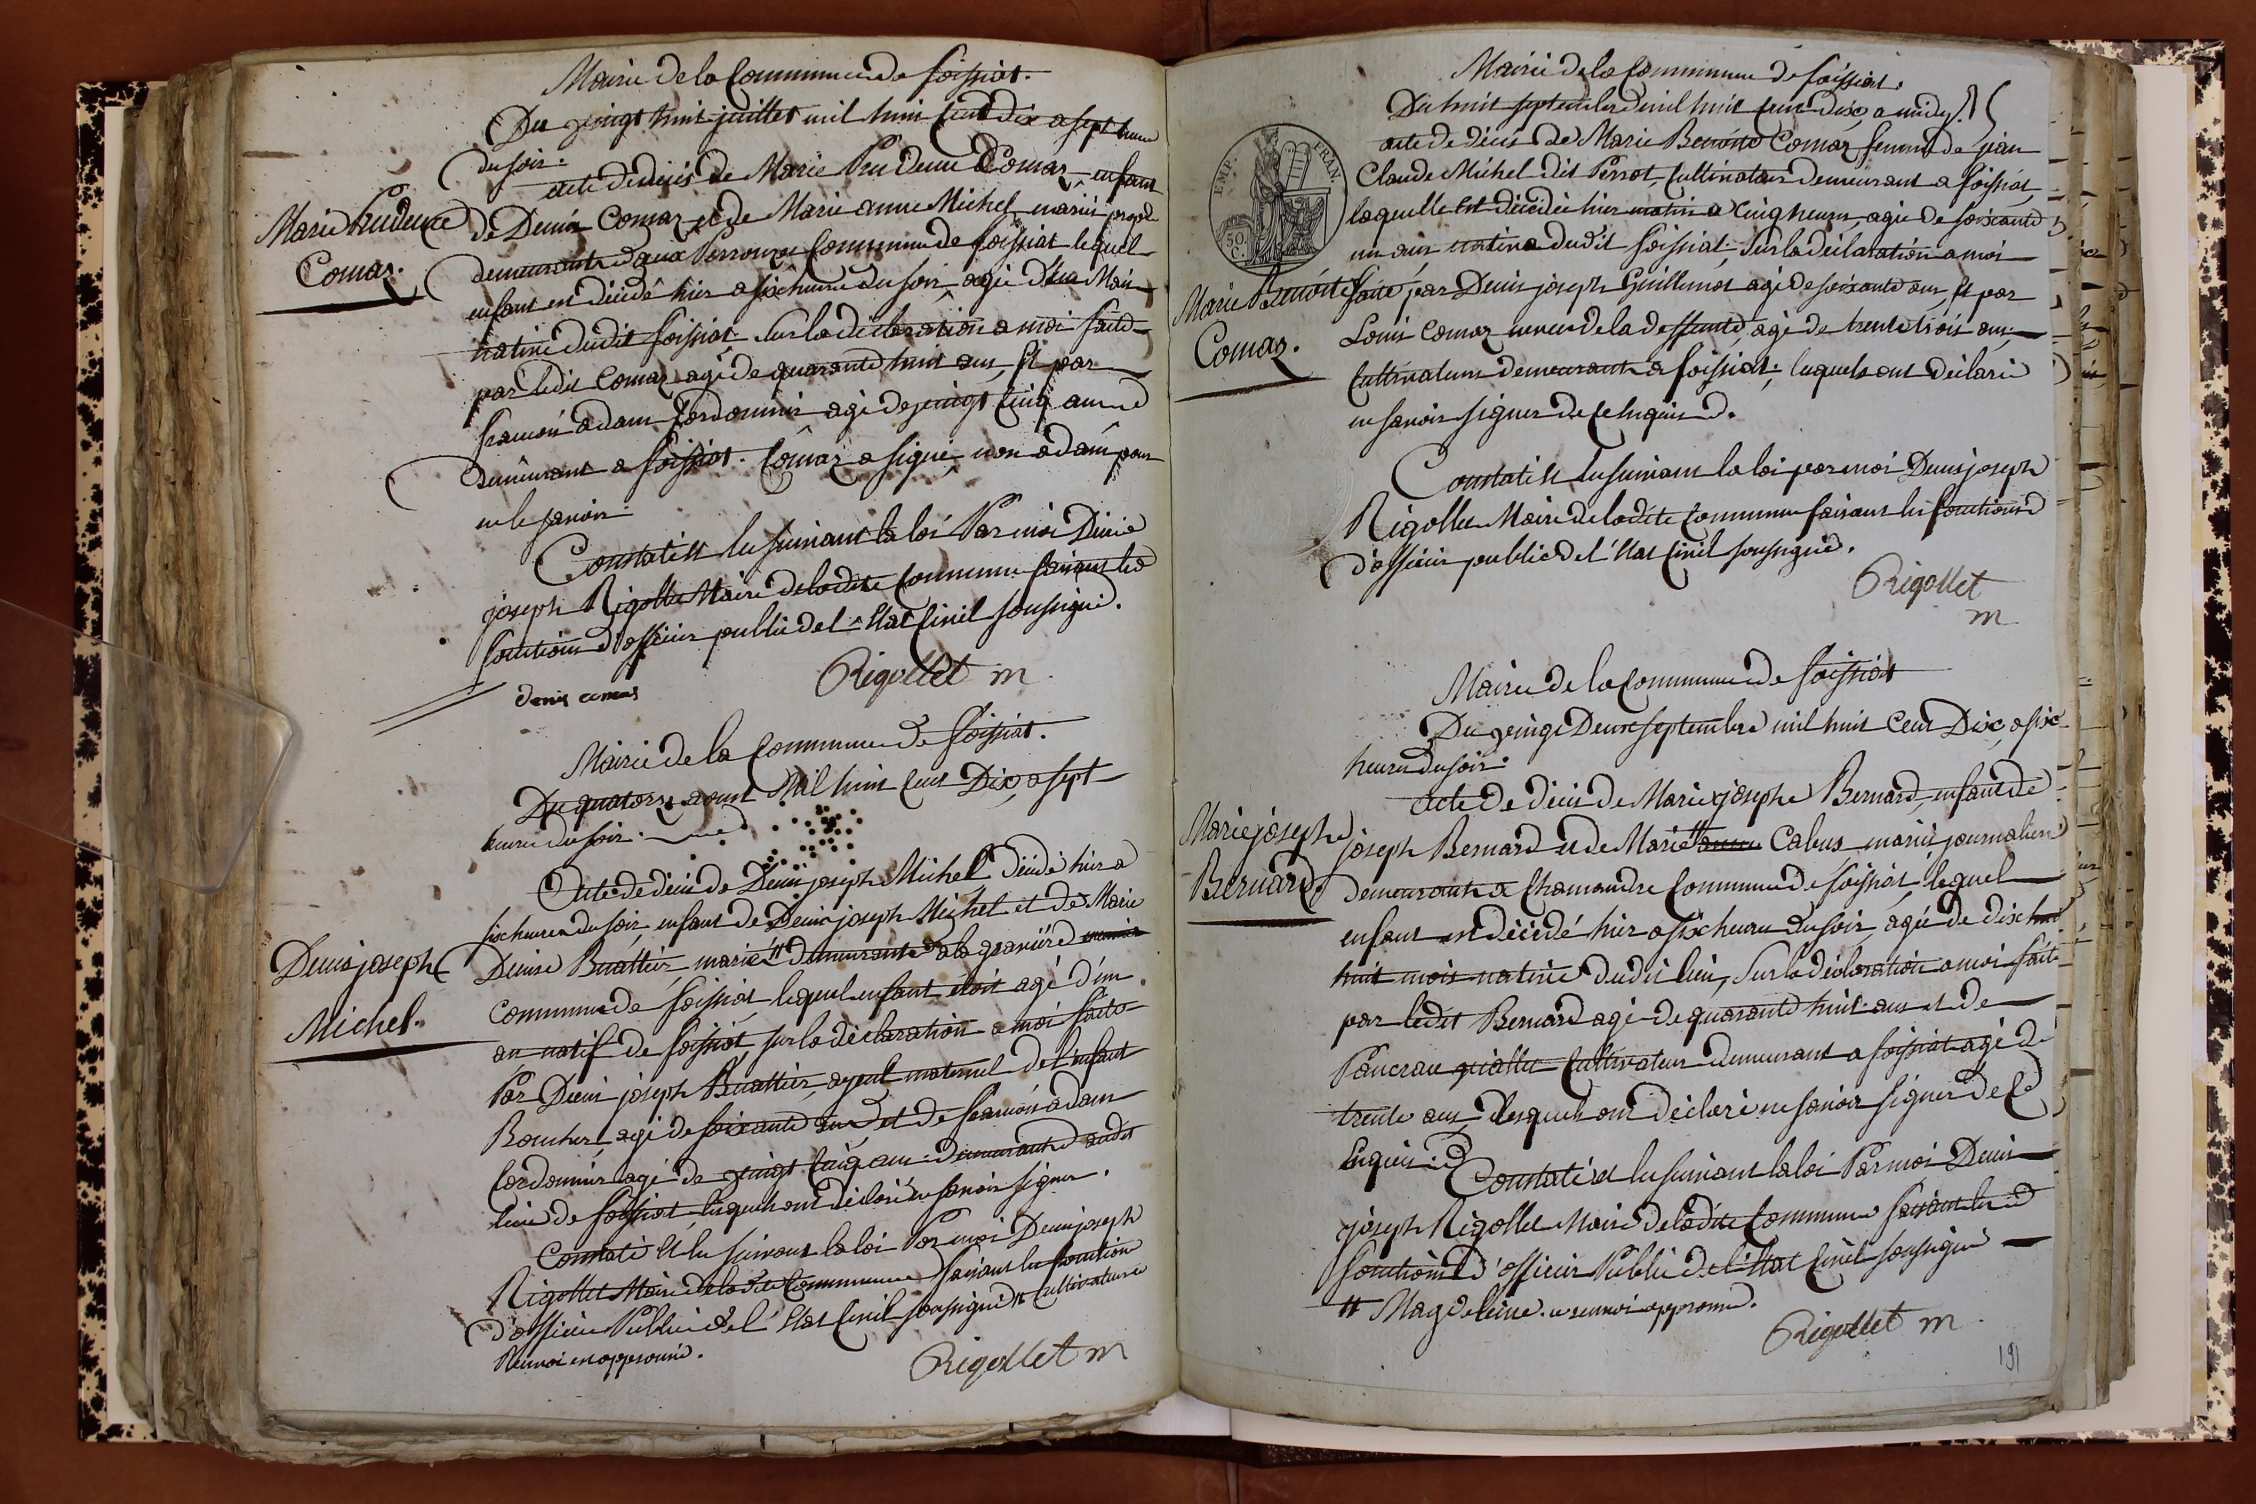 Mairie de la Commune de foissiat.
Du vingt huit juillet mil huit Cent dix a sept heures
du soir.
acte de décés de Marie Prudence Comas, enfant
Marie Prudence
Comas.
de Denis Comas et de Marie anne Michel mariés propr.
demeurants aux Perrouges Commune de foissiat lequel
enfant est décédé hier a six heures du soir agé d'un Mois
native dudit foissiat sur la déclaration a moi faite
par ledit Comas agé de quarante huit ans, et par
francois adam Cordonnier agé de vingt Cinq ans
demeurant a foissiat. Comas a signé, non adam pour
ne le savoir.
Constaté et lu suivant la loi Par moi Denis
joseph Rigollet Maire de ladite Commune faisant les
fonctions d'officier public de l'Etat Civil soussigné.
Rigollet m
denis comas
Mairie de la Commune de foissiat.
Du quatorze aoust Mil huit Cent Dix, a sept
heures du soir.
Acte de décés de Denis joseph Michel décédé hier a
six heures du soir, enfant de Denis joseph Michel et de Marie
Denis joseph
Michel.
Denise Buattier mariés # demeurants a la graniére
Commune de foissiat lequel enfant étoit agé d'un
an natif de foissiat, sur la déclaration a moi faite
Par Denis joseph Buattier, ayeul maternel de l'enfant
Boucher, agé de soixante ans et de francois adam
Cordonnier agé de vingt Cinq ans demeurants audit
lieu de foissiat, lesquels ont déclaré ne savoir signer.
Constaté et lu suivant la loi Par moi Denis joseph
Rigollet Maire de ladite Commune faisant les fonctions
d'officier Public de l'Etat Civil soussigné # Cultivateurs
Renvoi en approuvé.
Rigollet m
Mairie de la Commune de foissiat.
Du huit septembre mil huit Cent dix, a midy.
EMP. FRAN.
50 C.
acte de décés de Marie Benoite Comas femme de jean
Claude Michel dit Perrot, Cultivateur demeurant a foissiat,
laquelle est décédée hier matin a Cinq heures, agée de soixante
un ans native dudit foissiat, sur la déclaration a moi
Marie Benoite
Comas.
faite, par Denis joseph Guillemot agé de soixante ans, et par
Louis Comas neveu de la deffunte, agé de trente trois ans,
Cultivateurs demeurants a foissiat; lesquels ont déclaré
ne savoir signer de Ce Enquis.
Constaté et lu suivant la loi par moi Denis joseph
Rigollet Maire de ladite Commune faisant les fonctions
d'officier public de l'Etat Civil soussigné.
Rigollet
m
Mairie de la Commune de foissiat
Du vingt Deux septembre mil huit Cent Dix, a six
heures du soir.
acte de décés de Marie josephe Bernard, enfant de
Marie josephe
Bernard.
joseph Bernard et de Marie # Calus mariés journaliers
demeurants a Chamandre Commune de foissiat, lequel
enfant est décédé hier a six heures du soir, agée de dix
huit mois native dudit lieu, sur la déclaration a moi faite
par ledit Bernard agé de quarante huit ans et de
Pancrace viallet Cultivateur demeurant a foissiat agé de
trente ans, lesquels ont déclaré ne savoir signer de Ce
Enquis.
Constaté et lu suivant la loi Par moi Denis
joseph Rigollet Maire de ladite Commune faisant les
fonctions d'officier Public de l'Etat Civil soussigné
# Magdeleine. renvoi approuvé.
Rigollet m
191